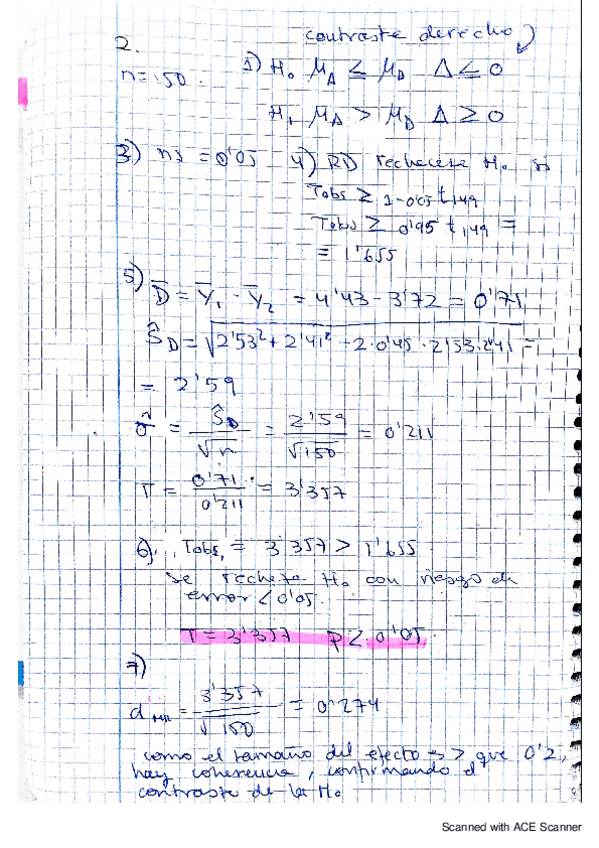 contraste derecho
2.
n=150.
1) H₀ μA ≤ μD Δ ≤ 0
H₁ μA > μD Δ ≥ 0
3) ns = 0'05 4) RD rechacese H₀ si
Tobs ≥ 1-0'05 t149
Tobs ≥ 0'95 t149 =
= 1'655
5) D̅ = Y̅₁ - Y̅₂ = 4'43 - 3'72 = 0'71
ŜD = √2'53² + 2'41² - 2·0'45·2'53·2'41 =
= 2'59
σ̂ = ŜD/√n = 2'59/√150 = 0'211
T = 0'71/0'211 = 3'357
6) Tobs = 3'357 > 1'655
Se rechaza H₀ con riesgo de
error < 0'05.
T = 3'357 p < 0'05.
7)
d = 3'357/√150 = 0'274
como el tamaño del efecto es > que 0'2,
hay coherencia, confirmando el
contraste de la H₀
Scanned with ACE Scanner